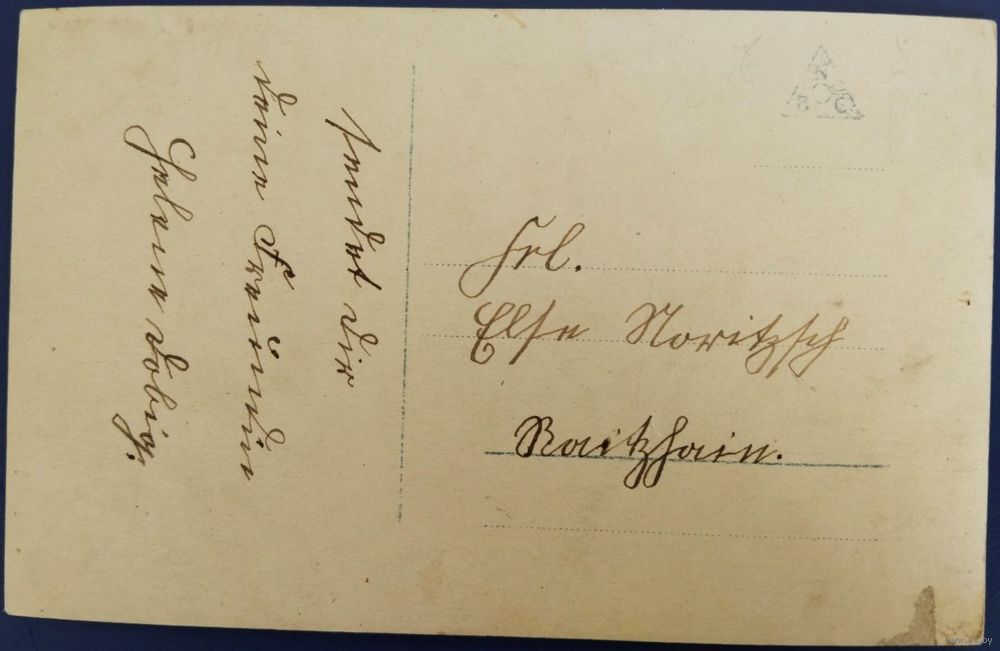 sendet dir
deine Freundin
Helene Dobig.
Frl.
Else Noritzsch
Raitzhain.
N
B G